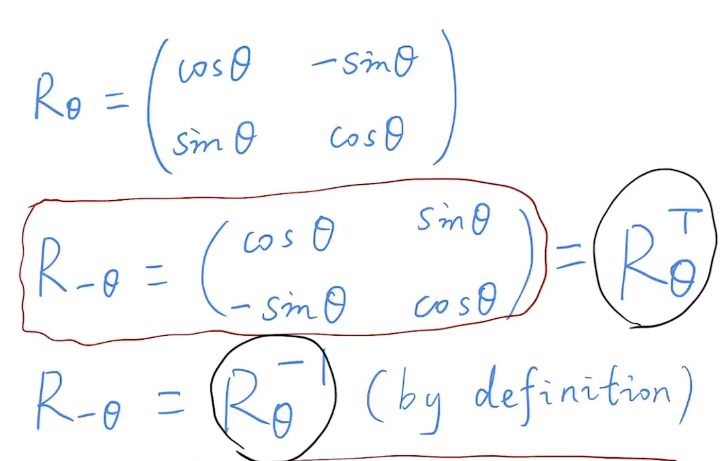 R_θ = ( cos θ   -sin θ
sin θ   cos θ )
R_{-θ} = ( cos θ   sin θ
-sin θ   cos θ ) = R_θ^T
R_{-θ} = R_θ^{-1} (by definition)